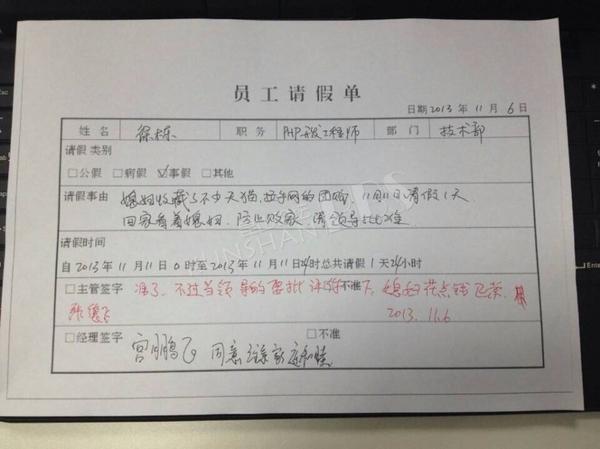 员工请假单
日期2013年11月6日
姓名 徐栋 职务 PHP开发工程师 部门 技术部
请假类别
□公假 □病假 ☑事假 □其他
请假事由 媳妇收藏了不少天猫、拉手网的团购,11月11日请假1天
回家看着媳妇,防止败家,请领导批准.
请假时间
自2013年11月11日0时至2013年11月11日24时总共请假1天24小时
□主管签字 准了,不过当领导的要批评你 不准 下,媳妇花点钱
2013.11.6
□经理签字 □不准
宫鹏飞 同意 家庭和睦